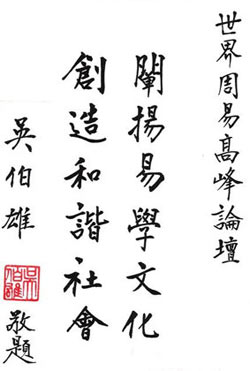 世界周易高峰論壇
闡揚易學文化
創造和諧社會
吳伯雄
吳伯雄
敬題